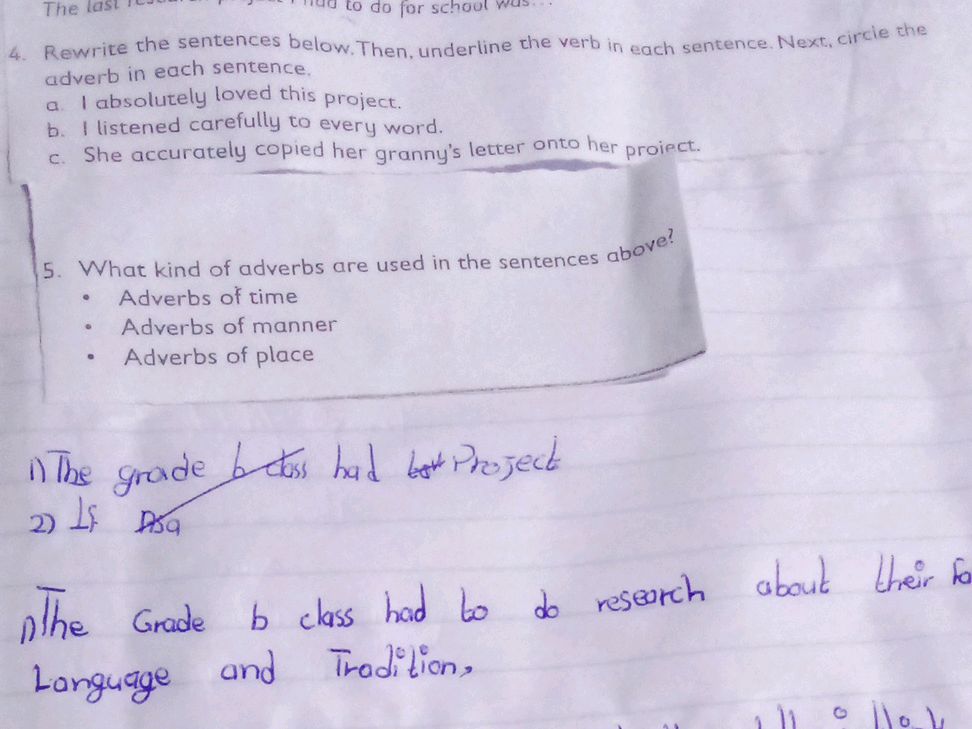 The last research project I had to do for school was...
4. Rewrite the sentences below. Then, underline the verb in each sentence. Next, circle the
adverb in each sentence.
a. I absolutely loved this project.
b. I listened carefully to every word.
c. She accurately copied her granny's letter onto her project.
5. What kind of adverbs are used in the sentences above?
• Adverbs of time
• Adverbs of manner
• Adverbs of place
1) The grade 6 class had Project
2) If
1) The Grade 6 class had to do research about their
Language and Tradition,